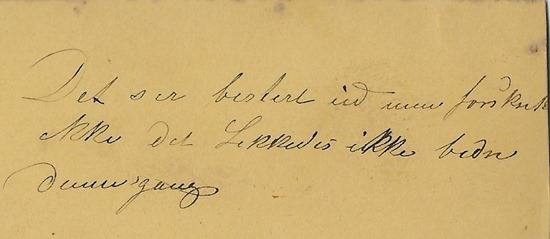 Det ser besterl ud men forskrek
ikke det Lekkedes ikke bedre
denne gang